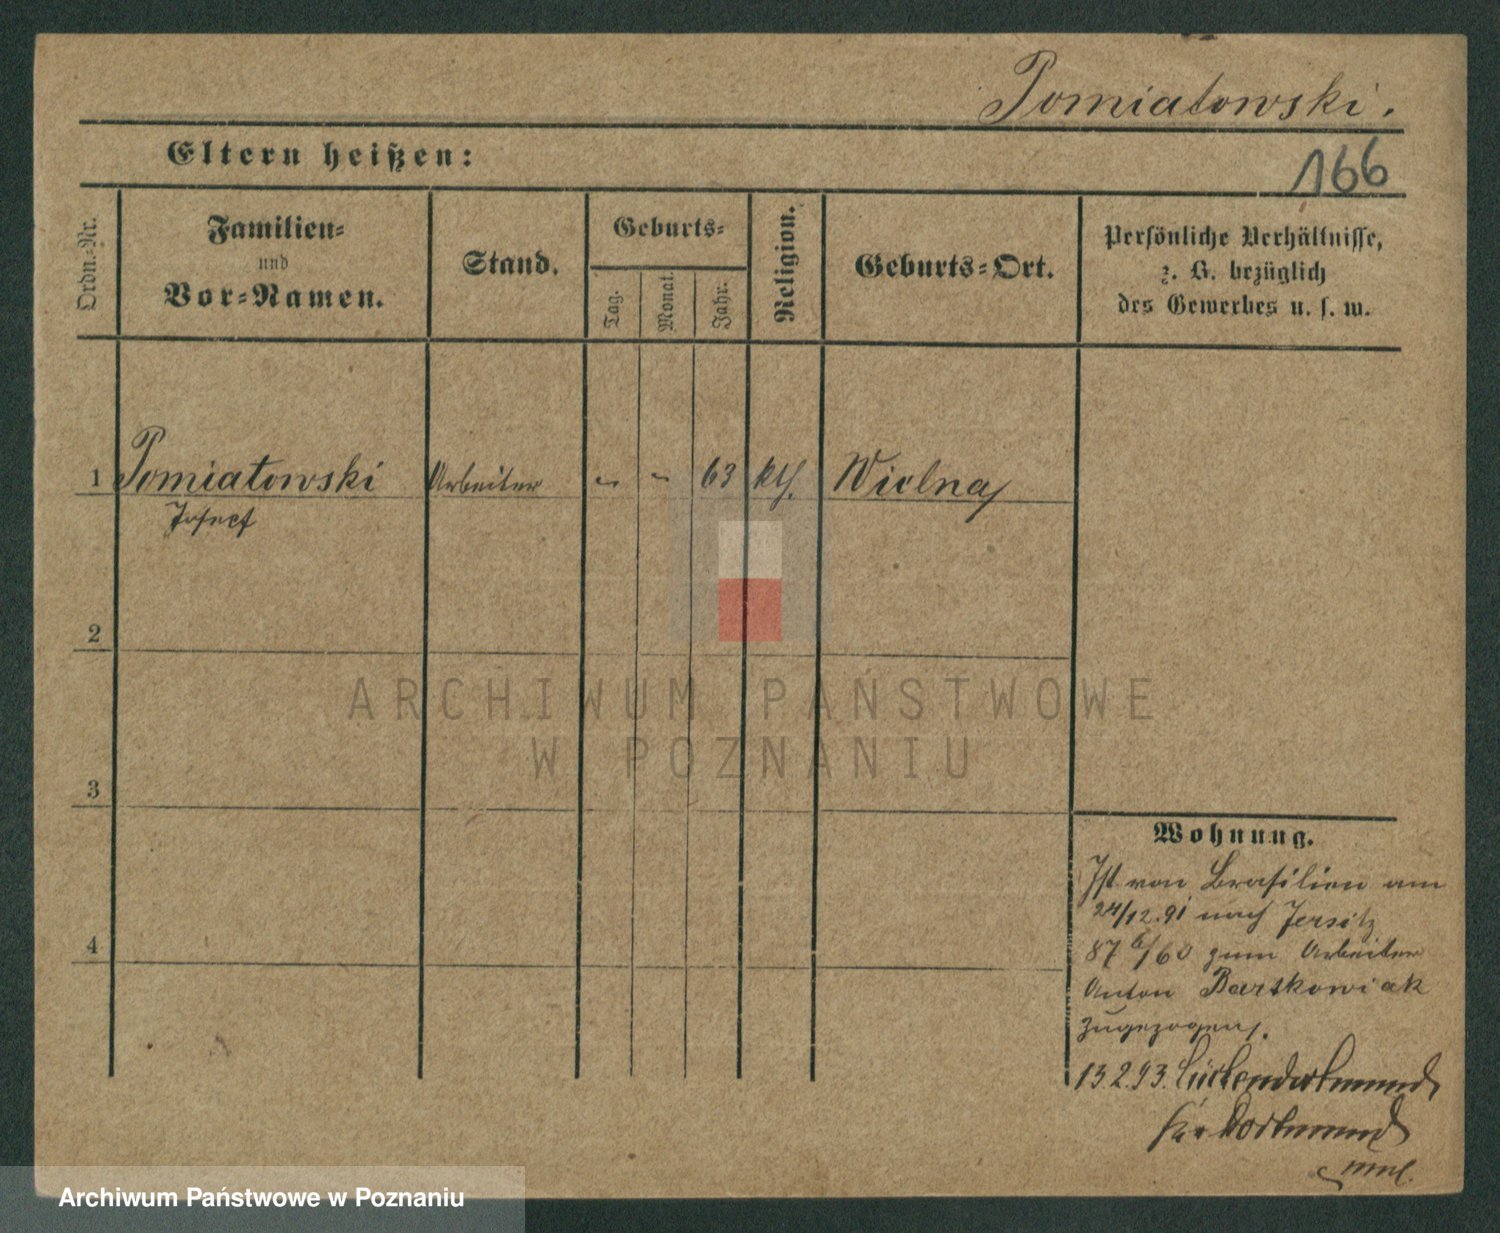 Pomiatowski.
Eltern heißen:
166
Ordn.-Nr.
Familien-
und
Vor-Namen.
Stand.
Geburts-
Tag.
Monat.
Jahr.
Religion.
Geburts-Ort.
Persönliche Verhältnisse,
z. B. bezüglich
des Gewerbes u. s. w.
1 Pomiatowski Arbeiter - - 63 kth. Wielna
Josef
2
3
4
ARCHIWUM PAŃSTWOWE
W POZNANIU
Wohnung.
Ist von Brasilien am
24/12.91 nach Jersitz
87 6/60 zum Arbeiter
Anton Bartkowiak
zugezogen.
13.2.93.
für Dortmund
Archiwum Państwowe w Poznaniu